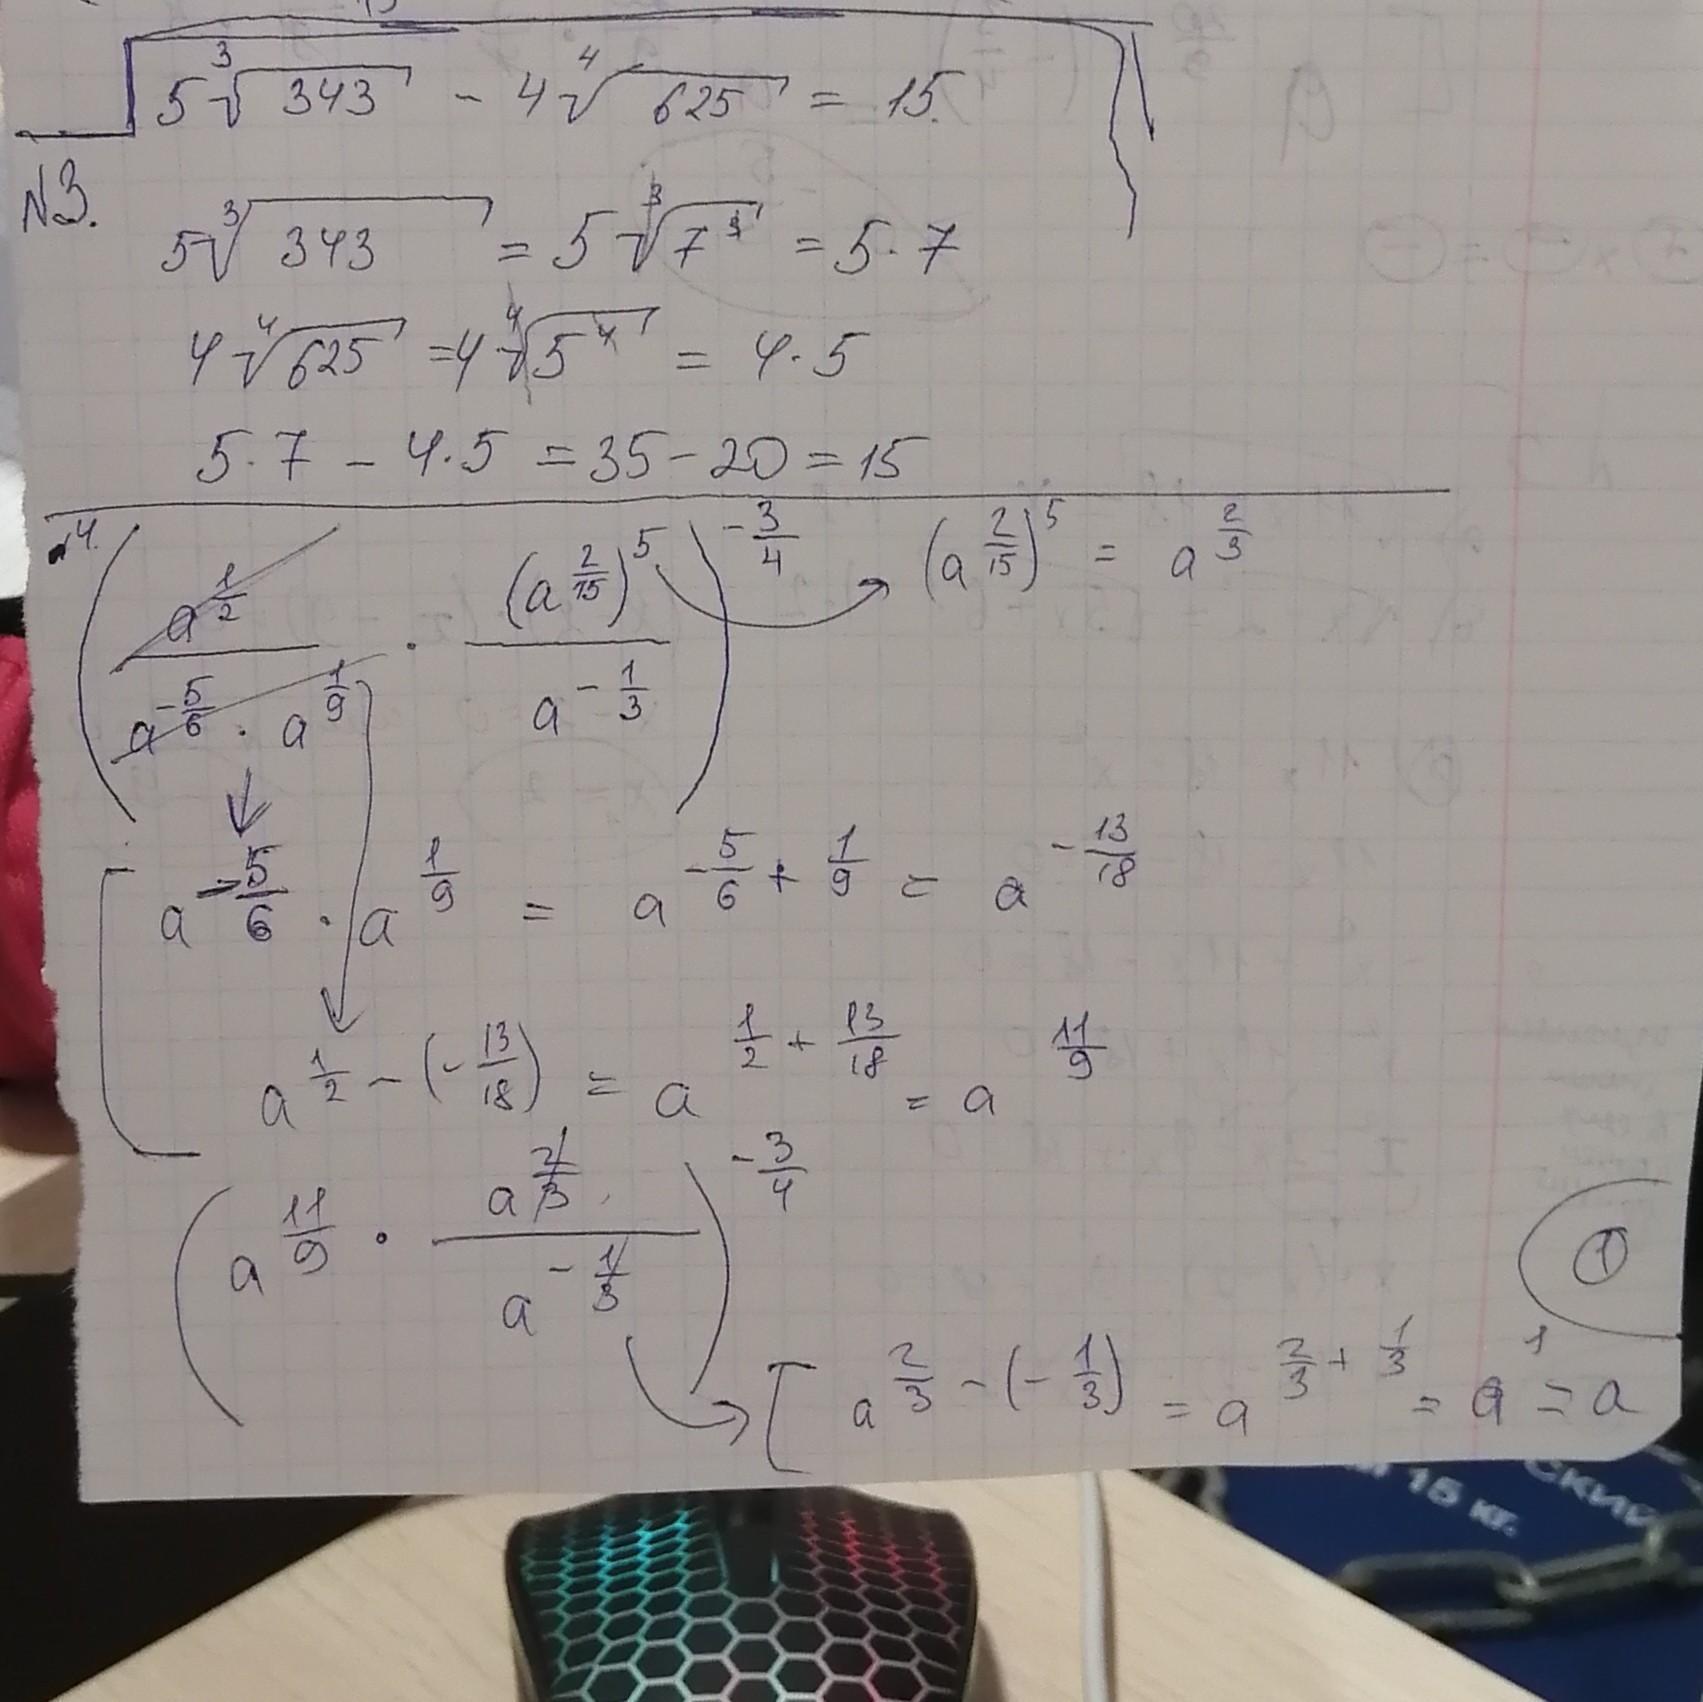 5∛343 - 4∜625 = 15.
N3.
5∛343 = 5∛7³ = 5·7
4∜625 = 4∜5⁴ = 4·5
5·7 - 4·5 = 35 - 20 = 15
4. (a^(1/2) / (a^(-5/6) · a^(1/9)) · (a^(2/15))^5 / a^(-1/3))^(-3/4) → (a^(2/15))^5 = a^(2/3)
a^(-5/6) · a^(1/9) = a^(-5/6 + 1/9) = a^(-13/18)
a^(1/2 - (-13/18)) = a^(1/2 + 13/18) = a^(11/9)
(a^(11/9) · a^(2/3) / a^(-1/3))^(-3/4)
1
a^(2/3 - (-1/3)) = a^(2/3 + 1/3) = a^1 = a
СКИЙ
15 кг.